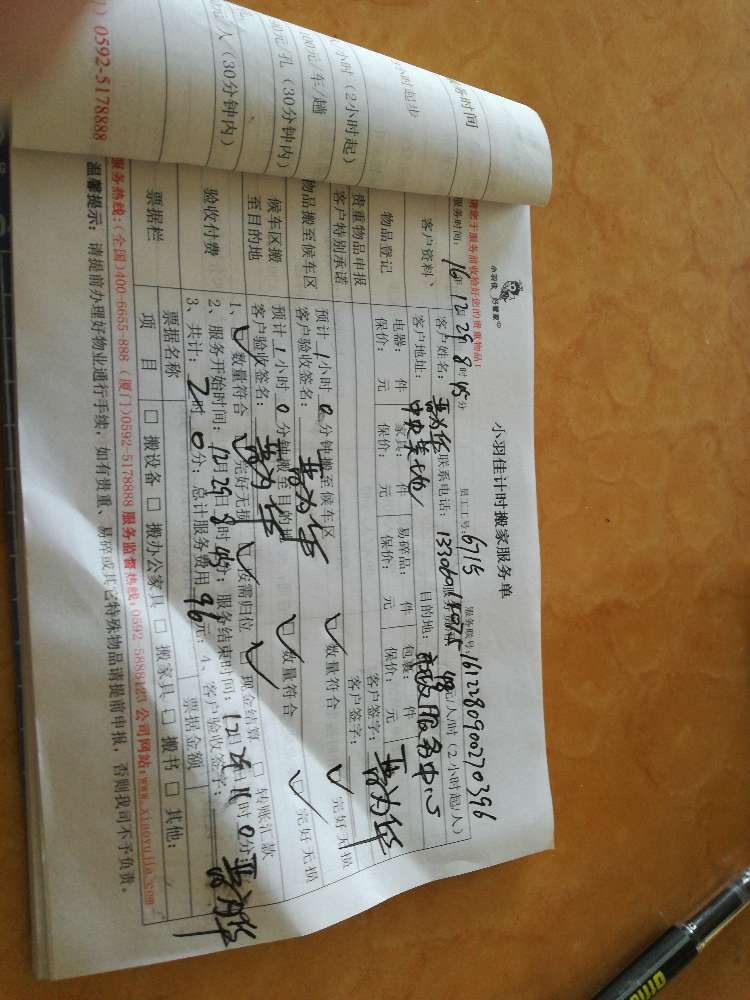 务时间
小时起步
小时（2小时起）
100元/车/趟
0元/孔（30分钟内）
0元/人（30分钟内）
0592-5178888
小羽佳 好管家
小羽佳计时搬家服务单
员工工号：6715 服务账号：16122809002270396
请您于服务前收拾好您的贵重物品！
服务时间：16年12月29日8时45分
元/人/时（2小时起/人）
客户资料
客户姓名： 联系电话：
客户地址：中央美地 目的地：服务中心
物品登记
电器： 件 家具： 件 易碎品： 件 包装： 件
保价： 元 保价： 元 保价： 元 保价： 元
贵重物品申报 客户签字：
客户特别承诺 客户签字：
物品搬至候车区
预计1小时0分钟搬至候车区 数量符合 完好无损
客户验收签名：
候车区搬至目的地
预计1小时0分钟搬至目的地 数量符合 完好无损
客户验收签名：
验收付费
1、 数量符合 完好无损 按需归位 现金结算 □ 转账汇款
2、服务开始时间：12月29日8时45分；服务结束时间：12月29日 时0分
3、共计：2时0分；总计服务费用96元；4、客户验收签字：
票据栏
票据名称 票据金额
项 目 □ 搬设备 □ 搬办公家具 □ 搬家具 □ 搬书 □ 其他：
服务热线：（全国）400-6655-888（厦门）0592-5178888 服务监督热线：0592-5888123 公司网站：www.xiaoyujia.com
温馨提示：请提前办理好物业通行手续，如有贵重、易碎或其它特殊物品请提前申报，否则我司不予负责。